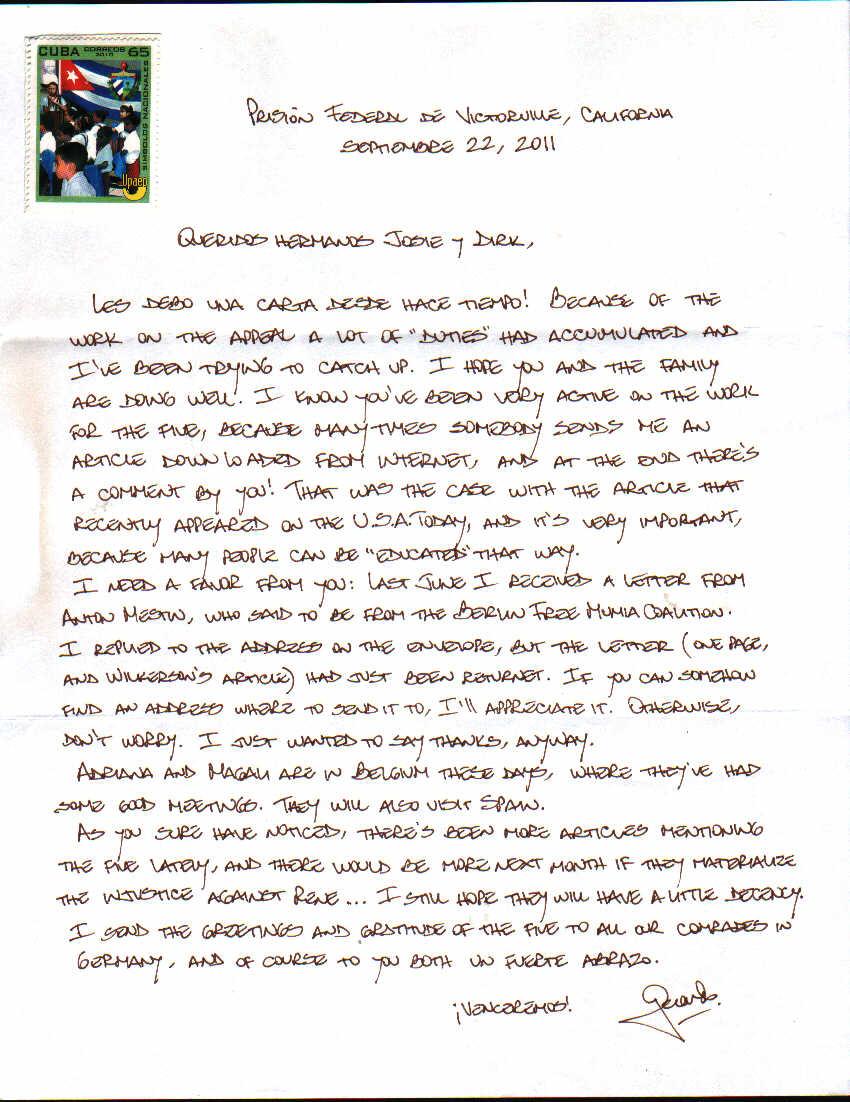 CUBA CORREOS 65
2010
SIMBOLOS NACIONALES
Upaep
PRISIÓN FEDERAL DE VICTORVILLE, CALIFORNIA
SEPTIEMBRE 22, 2011
QUERIDOS HERMANOS JOSIE Y DIRK,
LES DEBO UNA CARTA DESDE HACE TIEMPO! BECAUSE OF THE
WORK ON THE APPEAL A LOT OF "DUTIES" HAD ACCUMULATED AND
I'VE BEEN TRYING TO CATCH UP. I HOPE YOU AND THE FAMILY
ARE DOING WELL. I KNOW YOU'VE BEEN VERY ACTIVE ON THE WORK
FOR THE FIVE, BECAUSE MANY TIMES SOMEBODY SENDS ME AN
ARTICLE DOWNLOADED FROM INTERNET, AND AT THE END THERE'S
A COMMENT BY YOU! THAT WAS THE CASE WITH THE ARTICLE THAT
RECENTLY APPEARED ON THE U.S.A. TODAY, AND IT'S VERY IMPORTANT,
BECAUSE MANY PEOPLE CAN BE "EDUCATED" THAT WAY.
I NEED A FAVOR FROM YOU: LAST JUNE I RECEIVED A LETTER FROM
ANTON MESTIN, WHO SAID TO BE FROM THE BERLIN FREE MUMIA COALITION.
I REPLIED TO THE ADDRESS ON THE ENVELOPE, BUT THE LETTER (ONE PAGE,
AND WILKERSON'S ARTICLE) HAD JUST BEEN RETURNET. IF YOU CAN SOMEHOW
FIND AN ADDRESS WHERE TO SEND IT TO, I'll APPRECIATE IT. OTHERWISE,
DON'T WORRY. I JUST WANTED TO SAY THANKS, ANYWAY.
ADRIANA AND MAGALI ARE IN BELGIUM THESE DAYS, WHERE THEY'VE HAD
SOME GOOD MEETINGS. THEY WILL ALSO VISIT SPAIN.
AS YOU SURE HAVE NOTICED, THERE'S BEEN MORE ARTICLES MENTIONING
THE FIVE LATELY, AND THERE WOULD BE MORE NEXT MONTH IF THEY MATERIALIZE
THE INJUSTICE AGAINST RENE... I STILL HOPE THEY WILL HAVE A LITTLE DECENCY.
I SEND THE GREETINGS AND GRATITUDE OF THE FIVE TO ALL OUR COMRADES IN
GERMANY, AND OF COURSE TO YOU BOTH UN FUERTE ABRAZO.
¡VENCEREMOS! Gerardo.